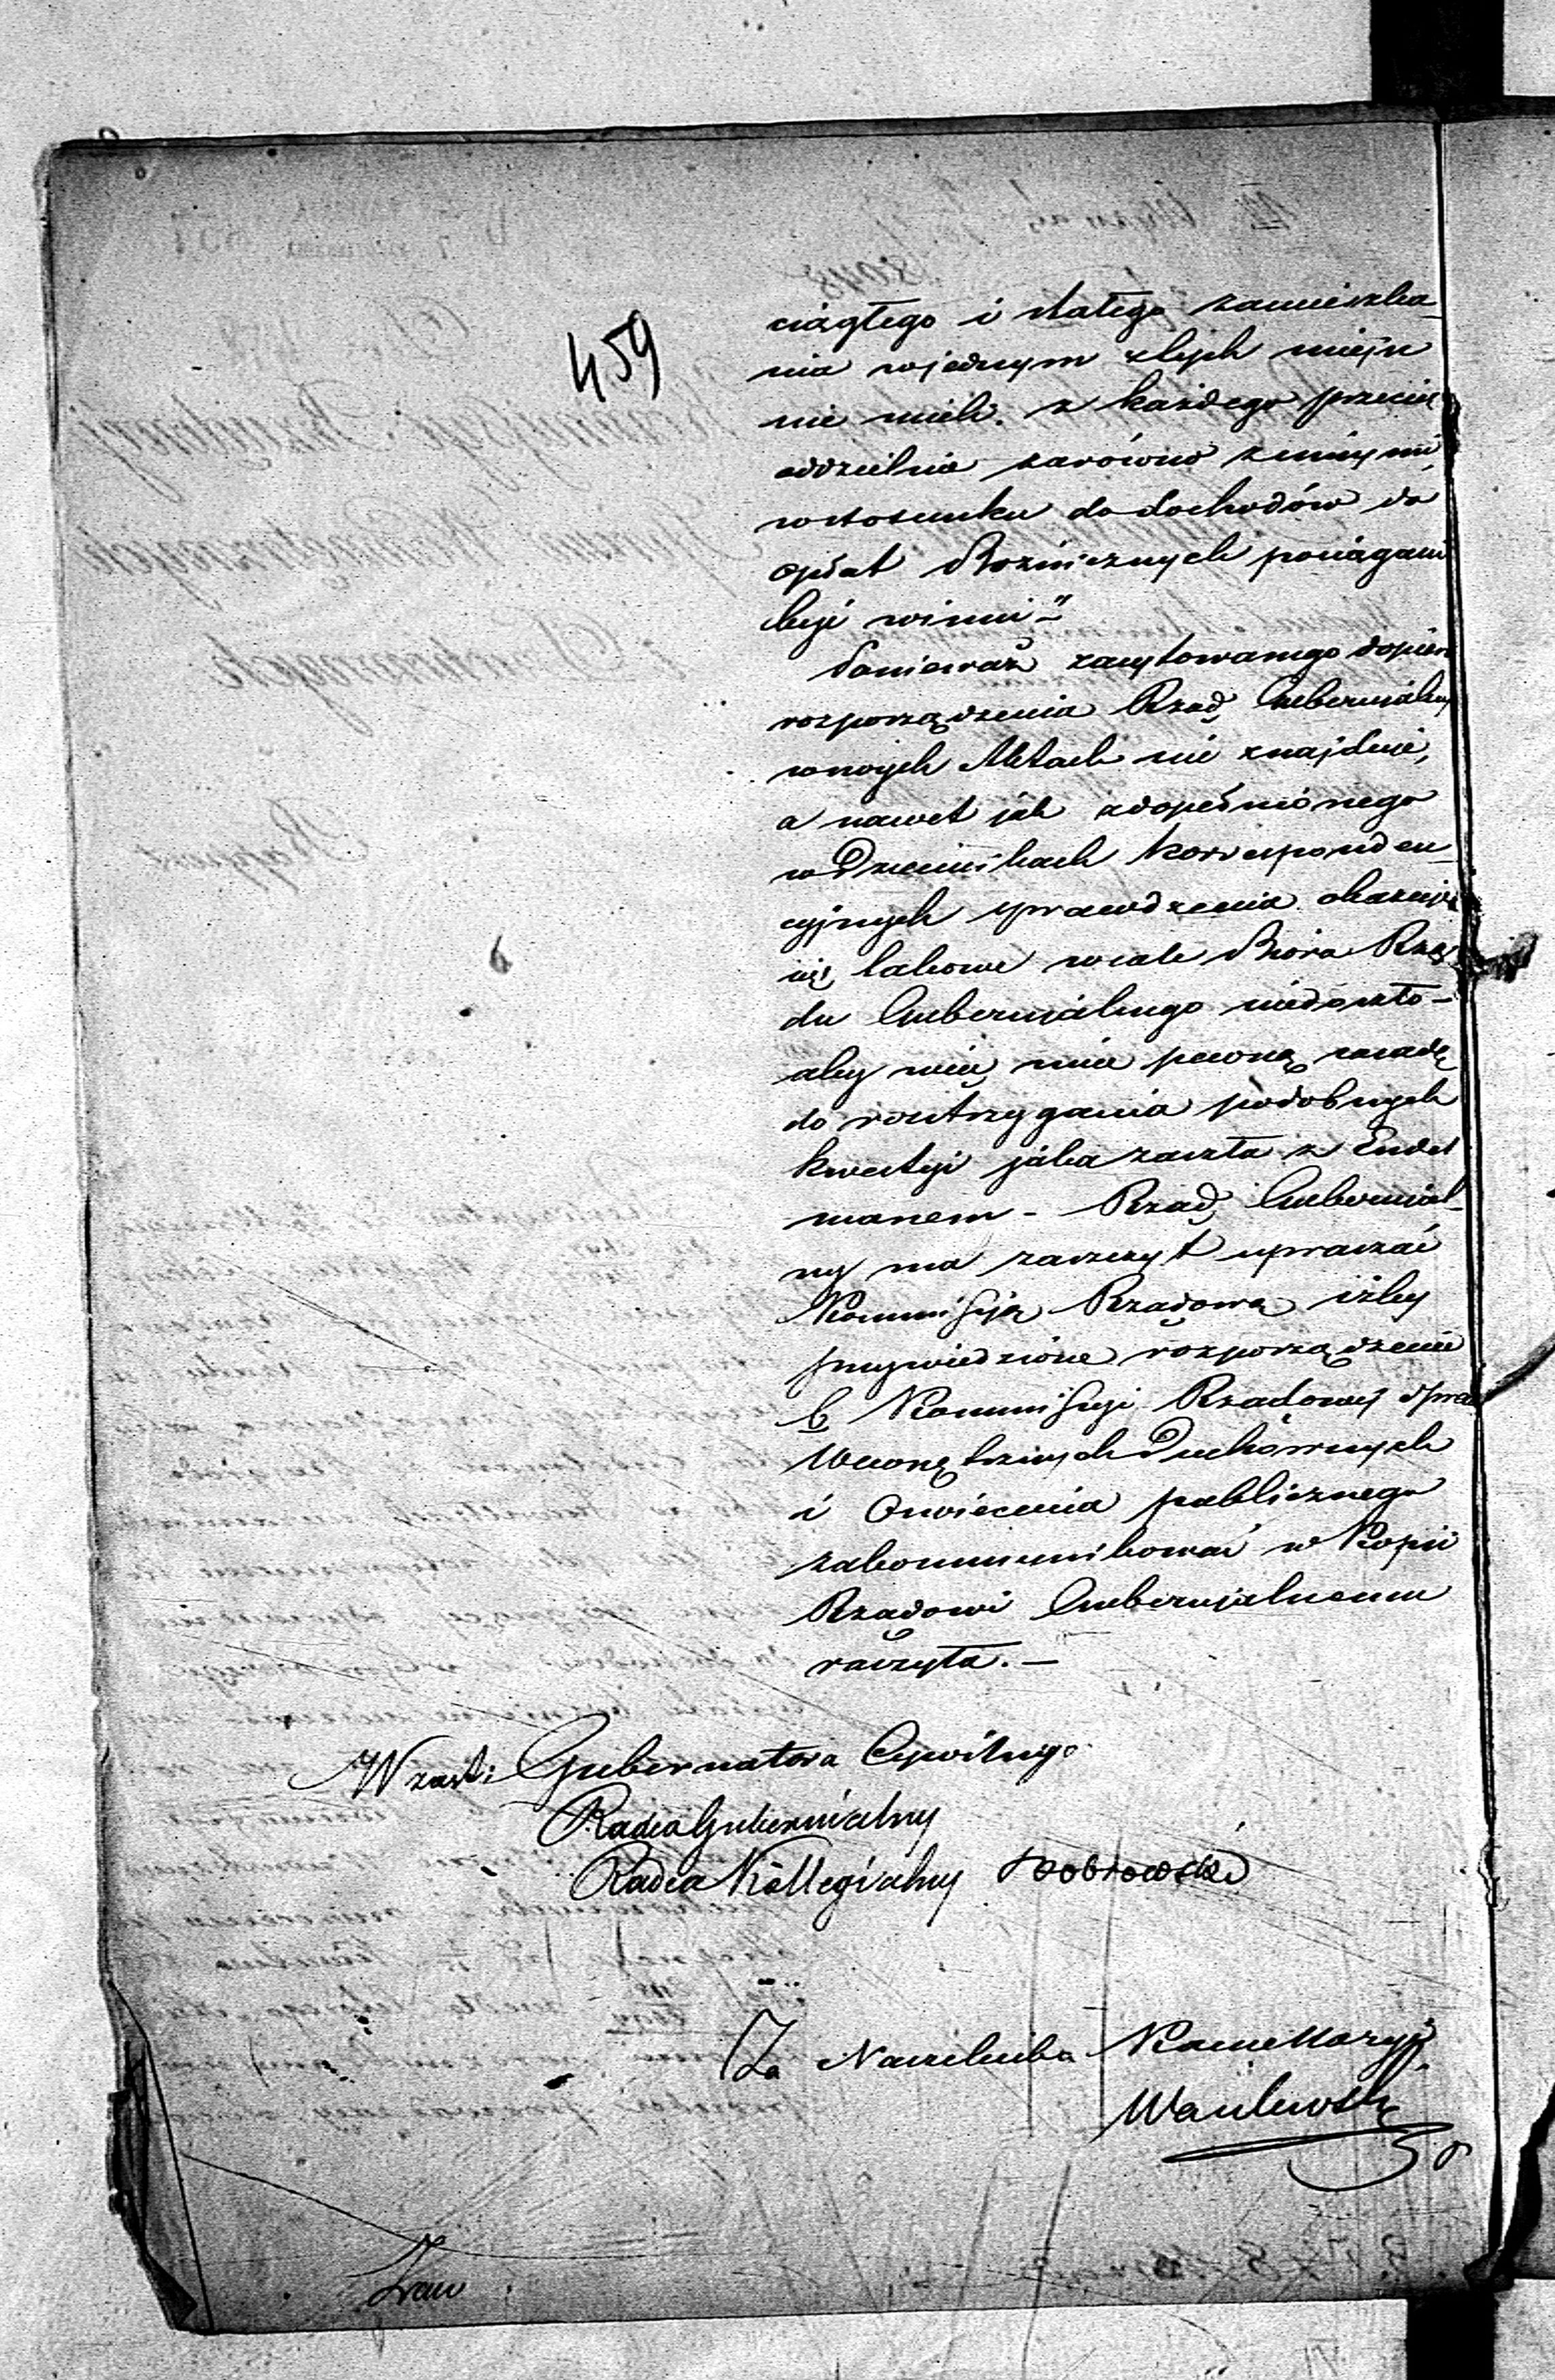 459
ciągłego i stałego zamieszka-
nia w jednym z tych miejsc
nie mieli. z każdego przecież
oddzielnie zarówno z innymi
w stosunku do dochodów do
opłat Bożniczych pociągani
być winni"
Ponieważ zacytowanego dopiero
rozporządzenia Rząd Gubernialny
w swych Aktach nie znajduje,
a nawet jak z dopełnionego
w Dziennikach korresponden-
cyjnych sprawdzenia okazuje
się takowe wcale Biura Rzą-
du Gubernialnego niedoszło –
aby więc mieć pewną zasadę
do rozstrzygania podobnych
kwestyi jaka zaszła z Endel
manem – Rząd Gubernial-
ny ma zaszczyt upraszać
Kommissyą Rządową iżby
przywiedzione rozporządzenie
b Kommissyi Rządowej Spraw
Wewnętrznych Duchownych
i Oświecenia publicznego
zakommunikować w Kopii
Rządowi Gubernialnemu
raczyła. –
W zast: Gubernatora Cywilnego
Radca Gubernialny
Radca Kollegialny Dobrowolski
Za Naczelnika Kancellaryi
Wasilewski